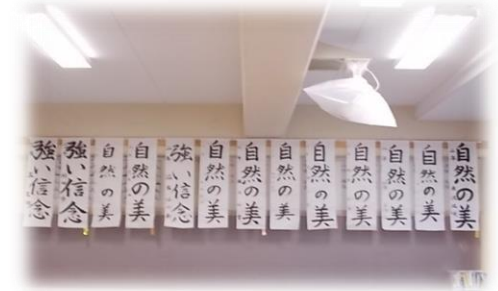 強い信念
強い信念
自然の美
自然の美
強い信念
自然の美
自然の美
自然の美
自然の美
自然の美
自然の美
自然の美
自然の美